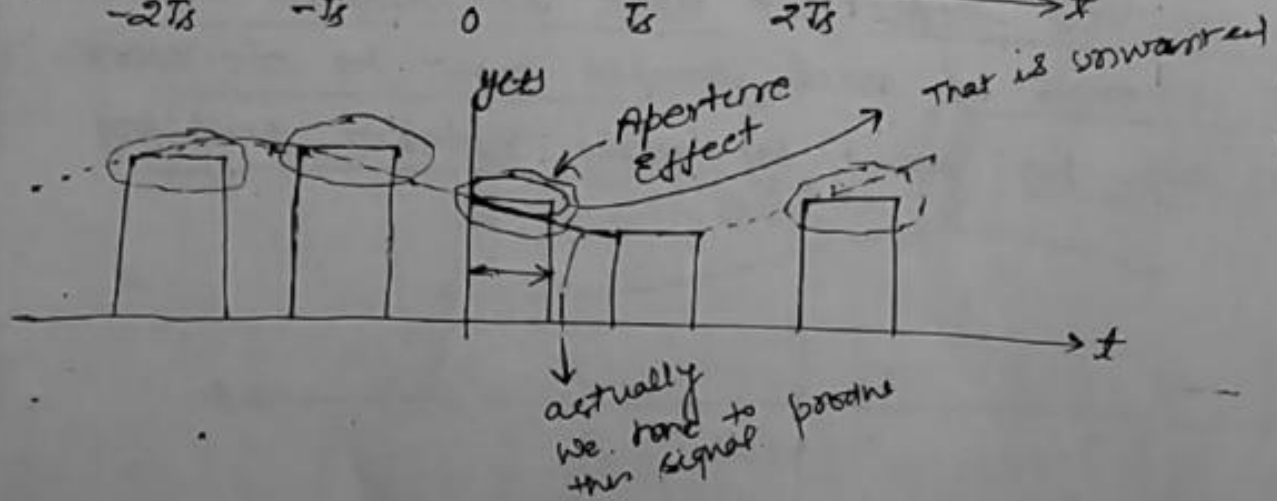 -2Ts -Ts 0 Ts 2Ts t
y(t)
Aperture
Effect
That is unwanted
t
actually
we have to produce
this signal.